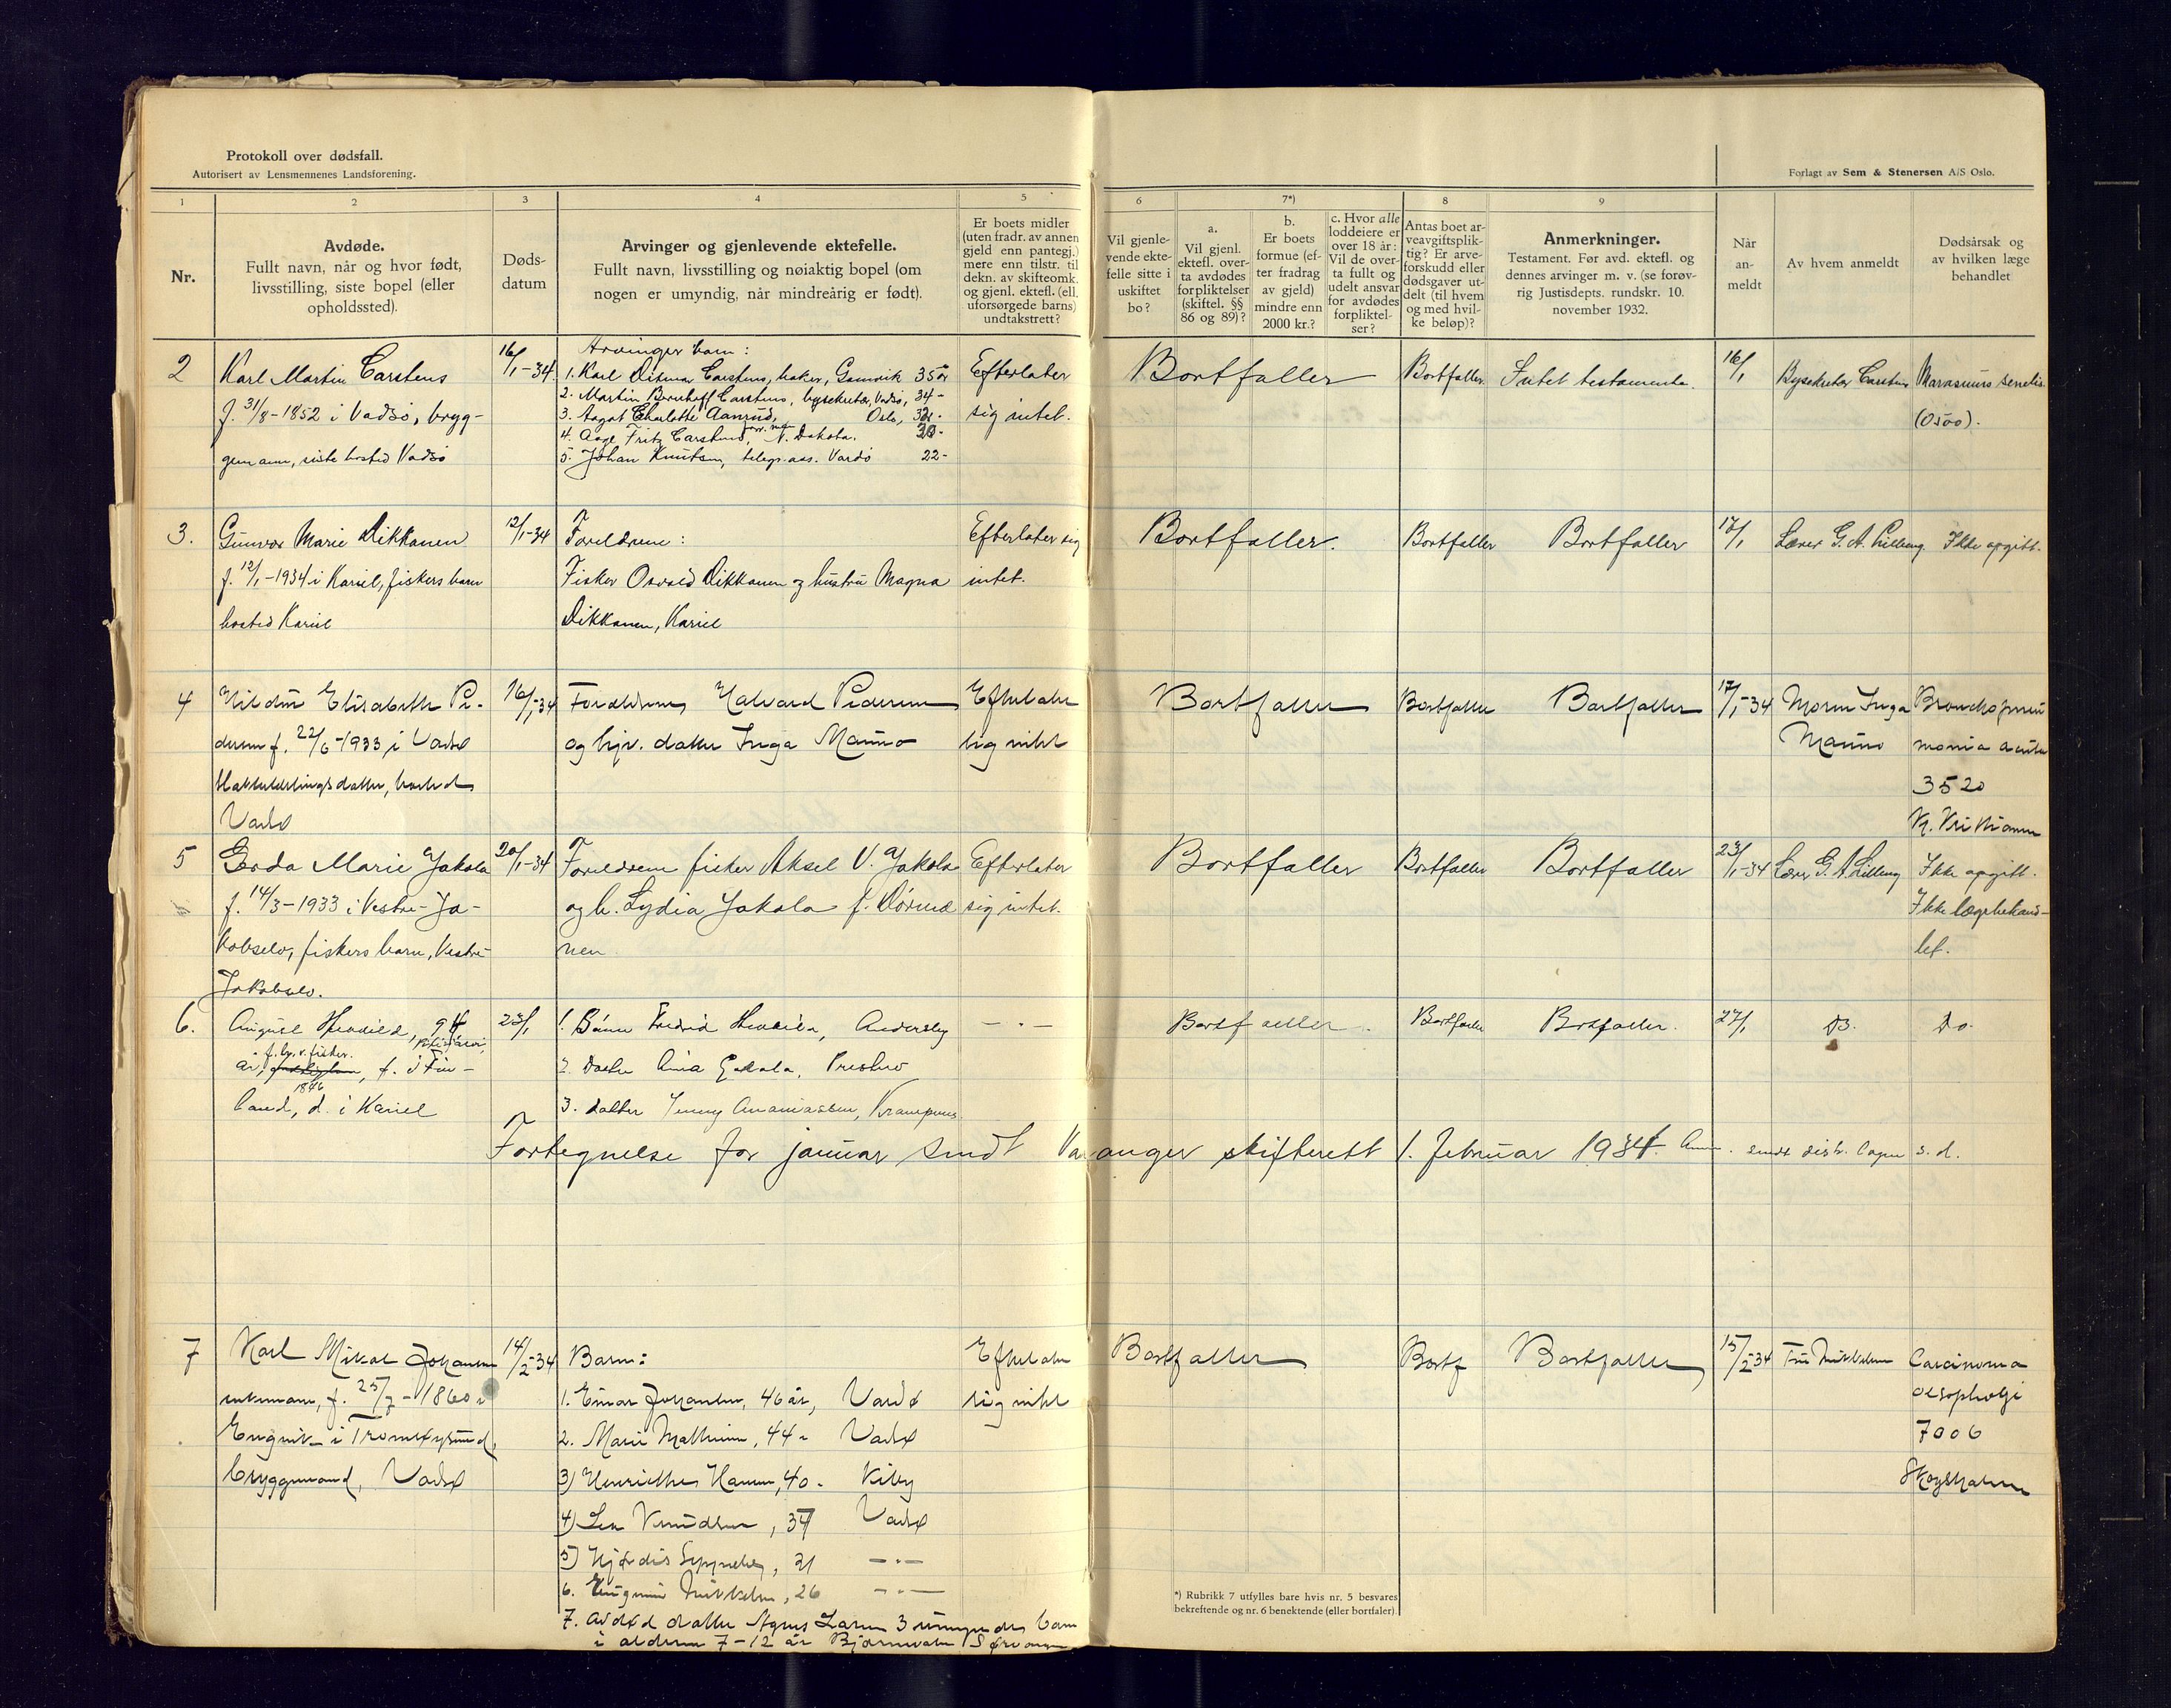 Protokoll over dødsfall.
Autorisert av Lensmennenes Landsforening.
Forlagt av Sem & Stenersen A/S Oslo.
1 2 3 4 5 6 7*) 8 9
Nr.
Avdøde.
Fullt navn, når og hvor født,
livsstilling, siste bopel (eller
opholdssted).
Døds-
datum
Arvinger og gjenlevende ektefelle.
Fullt navn, livsstilling og nøiaktig bopel (om
nogen er umyndig, når mindreårig er født).
Er boets midler
(uten fradr. av annen
gjeld enn pantegj.)
mere enn tilstr. til
dekn. av skifteomk.
og gjenl. ektefl. (ell.
uforsørgede barns)
undtakstrett?
Vil gjenle-
vende ekte-
felle sitte i
uskiftet
bo?
a.
Vil gjenl.
ektefl. over-
ta avdødes
forpliktelser
(skiftel. §§
86 og 89)?
b.
Er boets
formue (ef-
ter fradrag
av gjeld)
mindre enn
2000 kr.?
c. Hvor alle
loddeiere er
over 18 år:
Vil de over-
ta fullt og
udelt ansvar
for avdødes
forpliktel-
ser?
Antas boet ar-
veavgiftsplik-
tig? Er arve-
forskudd eller
dødsgaver ut-
delt (til hvem
og med hvil-
ke beløp)?
Anmerkninger.
Testament. Før avd. ektefl. og
dennes arvinger m. v. (se forøv-
rig Justisdepts. rundskr. 10.
november 1932.
Når
an-
meldt
Av hvem anmeldt
Dødsårsak og
av hvilken læge
behandlet
2
Karl Martin Carstens
f. 31/8-1852 i Vadsø, bryg-
gemann, siste bosted Vadsø
16/1-34
Arvinger barn:
1. Karl Ditmar Carstens, baker, Gamvik 35 år
2. Martin Bernhoff Carstens, bysekretær, Vadsø, 34-
3. Aagot Charlotte Aanrud, Oslo, 32-
4. Aage Fritz Carstens, N. Dakota. 30-
5. Johan Knutsen, telegr.ass. Vardø 22-
Efterlater
sig intet.
Bortfaller
Bortfaller
Intet testamente.
16/1
Bysekretær Carstens
Marasmus senilis
(0500).
3.
Gunvor Marie Dikkanen
f. 12/1-1934 i Kariel, fiskers barn
bosted Kariel
12/1-34
Foreldrene:
Fisker Osvald Dikkanen og hustru Magna
Dikkanen, Kariel
Efterlater sig
intet.
Bortfaller.
Bortfaller
Bortfaller
17/1
Lærer G. A. Lilleng
Ikke opgitt.
4
Hildur Elisabeth Pe-
dersen f. 22/6-1933 i Vadsø
datter, bosted
Vadsø
16/1-34
Foreldrene Halvard Pedersen
og hjv. datter Inga Mauno
Efterlater
sig intet
Bortfaller
Bortfaller
Bortfaller
17/1-34
Moren Inga
Mauno
Bronchopneu
monia acuta
3520
5
Gerda Marie Jakola
f. 14/3-1933 i Vestre-Ja-
kobselv, fiskers barn, Vestre-
Jakobselv.
20/1-34
Foreldrene fisker Aksel V. Jakola
og h. Lydia Jakola f.
nen
Efterlater
sig intet.
Bortfaller
Bortfaller
Bortfaller
23/1-34
Lærer G. A Lilleng
Ikke opgitt.
Ikke lægebehand-
let.
6.
August 94
år, f. i Fin-
1846
land, d. i Kariel
23/1
1. Sønn Fredrik Andersby
2. Datter
3. datter Jenny Ananiassen,
— " —
Bortfaller.
Bortfaller
Bortfaller.
27/1
Do.
Do.
Fortegnelse for januar sendt Varanger skifterett 1. februar 1934. sendt distr. lægen s. d.
7
Karl Mikal Johansen
enkemann, f. 25/7-1860 i
Engvik i Tromsøysund,
bryggemand, Vadsø
14/2-34
Barn:
1. Einar Johansen, 46 år, Vardø
2. Marie Mathisen, 44 " Vadsø
3) Henriette Hansen, 40 - Kiby
4) Lea Knudsen, 37 Vadsø
5) Hjørdis 31 — " —
6. Mikkelsen, 26 — " —
7. avdød datter Agnes Larsen 3 umyndige barn
i alderen 7-12 år
Efterlater
sig intet
Bortfaller
Bortf
Bortfaller
15/2-34
Fru Mikkelsen
Carcinoma
oesophagi
7006
Skogsholm
*) Rubrikk 7 utfylles bare hvis nr. 5 besvares
bekreftende og nr. 6 benektende (eller bortfaler).